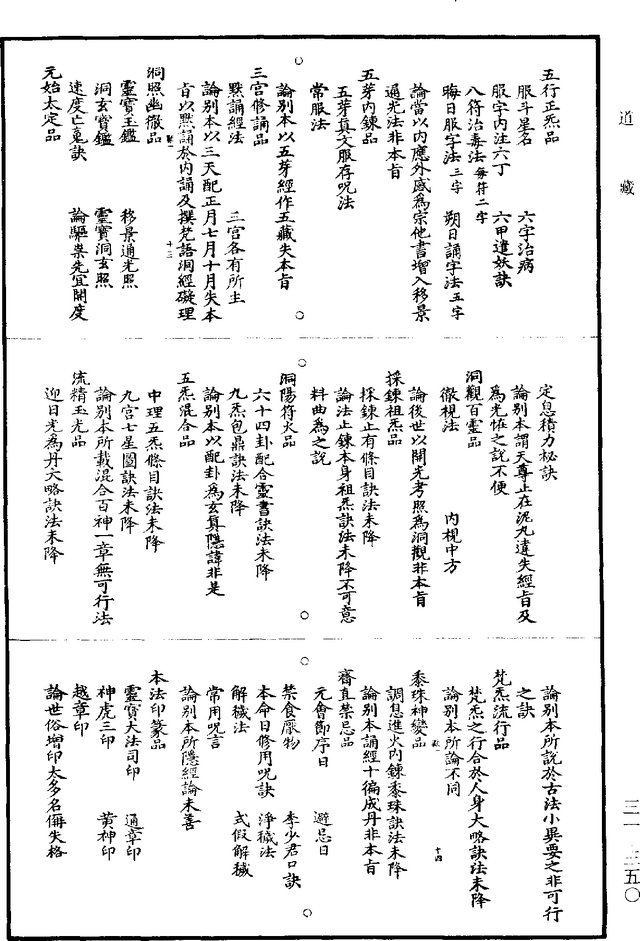 道藏
五行正炁品
服斗星名　六字治病
服字内注六丁　六甲遣妖訣
八符治毒法每符二字
晦日服字法三字　朔日誦字法五字
論當以内應外感為宗他書增入移景
通光法非本旨
五芽内鍊品
五芽真文服存呪法
常服法
論別本以五芽經作五藏失本旨
三宫修誦品
黙誦經法　三宫各有所主
論別本以三天配正月七月十月失本
旨以黙誦於内誦及撰梵語洞經礙理
十三
洞照幽微品
靈寳玉鑑　移景通光照
洞玄寳鑑　靈寳洞玄照
速度亡䰟訣　論驅祟先宜開度
元始太定品
定息積力秘訣
論別本謂天尊止在泥丸違失經旨及
為光怪之說不便
洞觀百靈品
徹視法　内視中方
論後世以開光考照為洞觀非本旨
採鍊祖炁品
採鍊止有條目訣法未降
論法止鍊本身祖炁訣法未降不可意
料曲為之說
洞陽符火品
六十四卦配合靈書訣法未降
九炁包鼎訣法未降
論別本以配卦為玄真隱諱非是
五炁混合品
中理五炁條目訣法未降
九宫七星圖訣法未降
論別本所載混合百神一章無可行法
流精玉光品
迎日光為丹大略訣法未降
論別本所說於古法小異要之非可行
之訣
梵炁流行品
梵炁之行合於人身大略訣法未降
論別本所論不同
十四
黍珠神變品
調息進火内鍊黍珠訣法未降
論別本誦經十徧成丹非本旨
齋直禁忌品
元會節序日　避忌日
禁食厭物　李少君口訣
本命日修用呪訣　淨穢法
解穢法　式假解穢
常用呪言
論別本所隱經論未善
本法印篆品
靈寳大法司印　通章印
神虎三印　黄神印
越章印
論世俗增印太多名偁失格
三一—三五〇